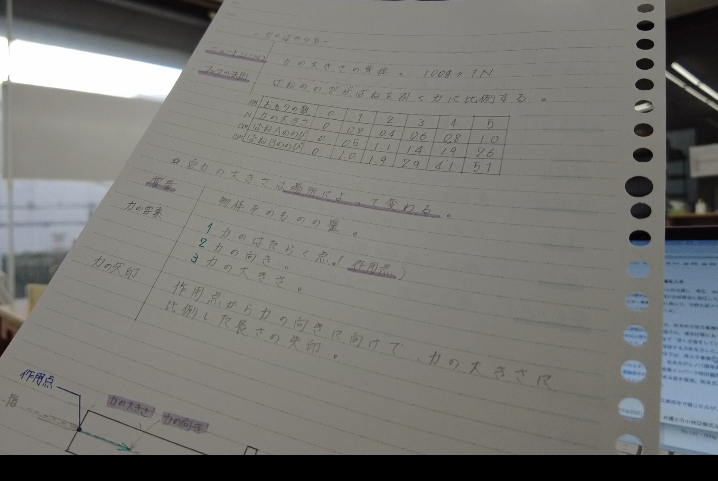 力のはたらき
ニュートン(N) 力の大きさの単位。 100g→1N
フックの法則 ばねののびはばねを引く力に比例する。
おもりの数 0 1 2 3 4 5
N 力の大きさ 0 0.2 0.4 0.6 0.8 1.0
cm ばねAののび 0 0.5 1.1 1.4 1.9 2.6
cm ばねBののび 0 1.0 1.9 2.9 4.1 5.1
重力の大きさは場所によって変わる。
質量 物体そのものの量。
力の要素
1 力のはたらく点。(作用点)
2 力の向き。
3 力の大きさ。
力の矢印 作用点から力の向きに向けて、力の大きさに
比例した長さの矢印。
作用点
指
力の大きさ
力の向き